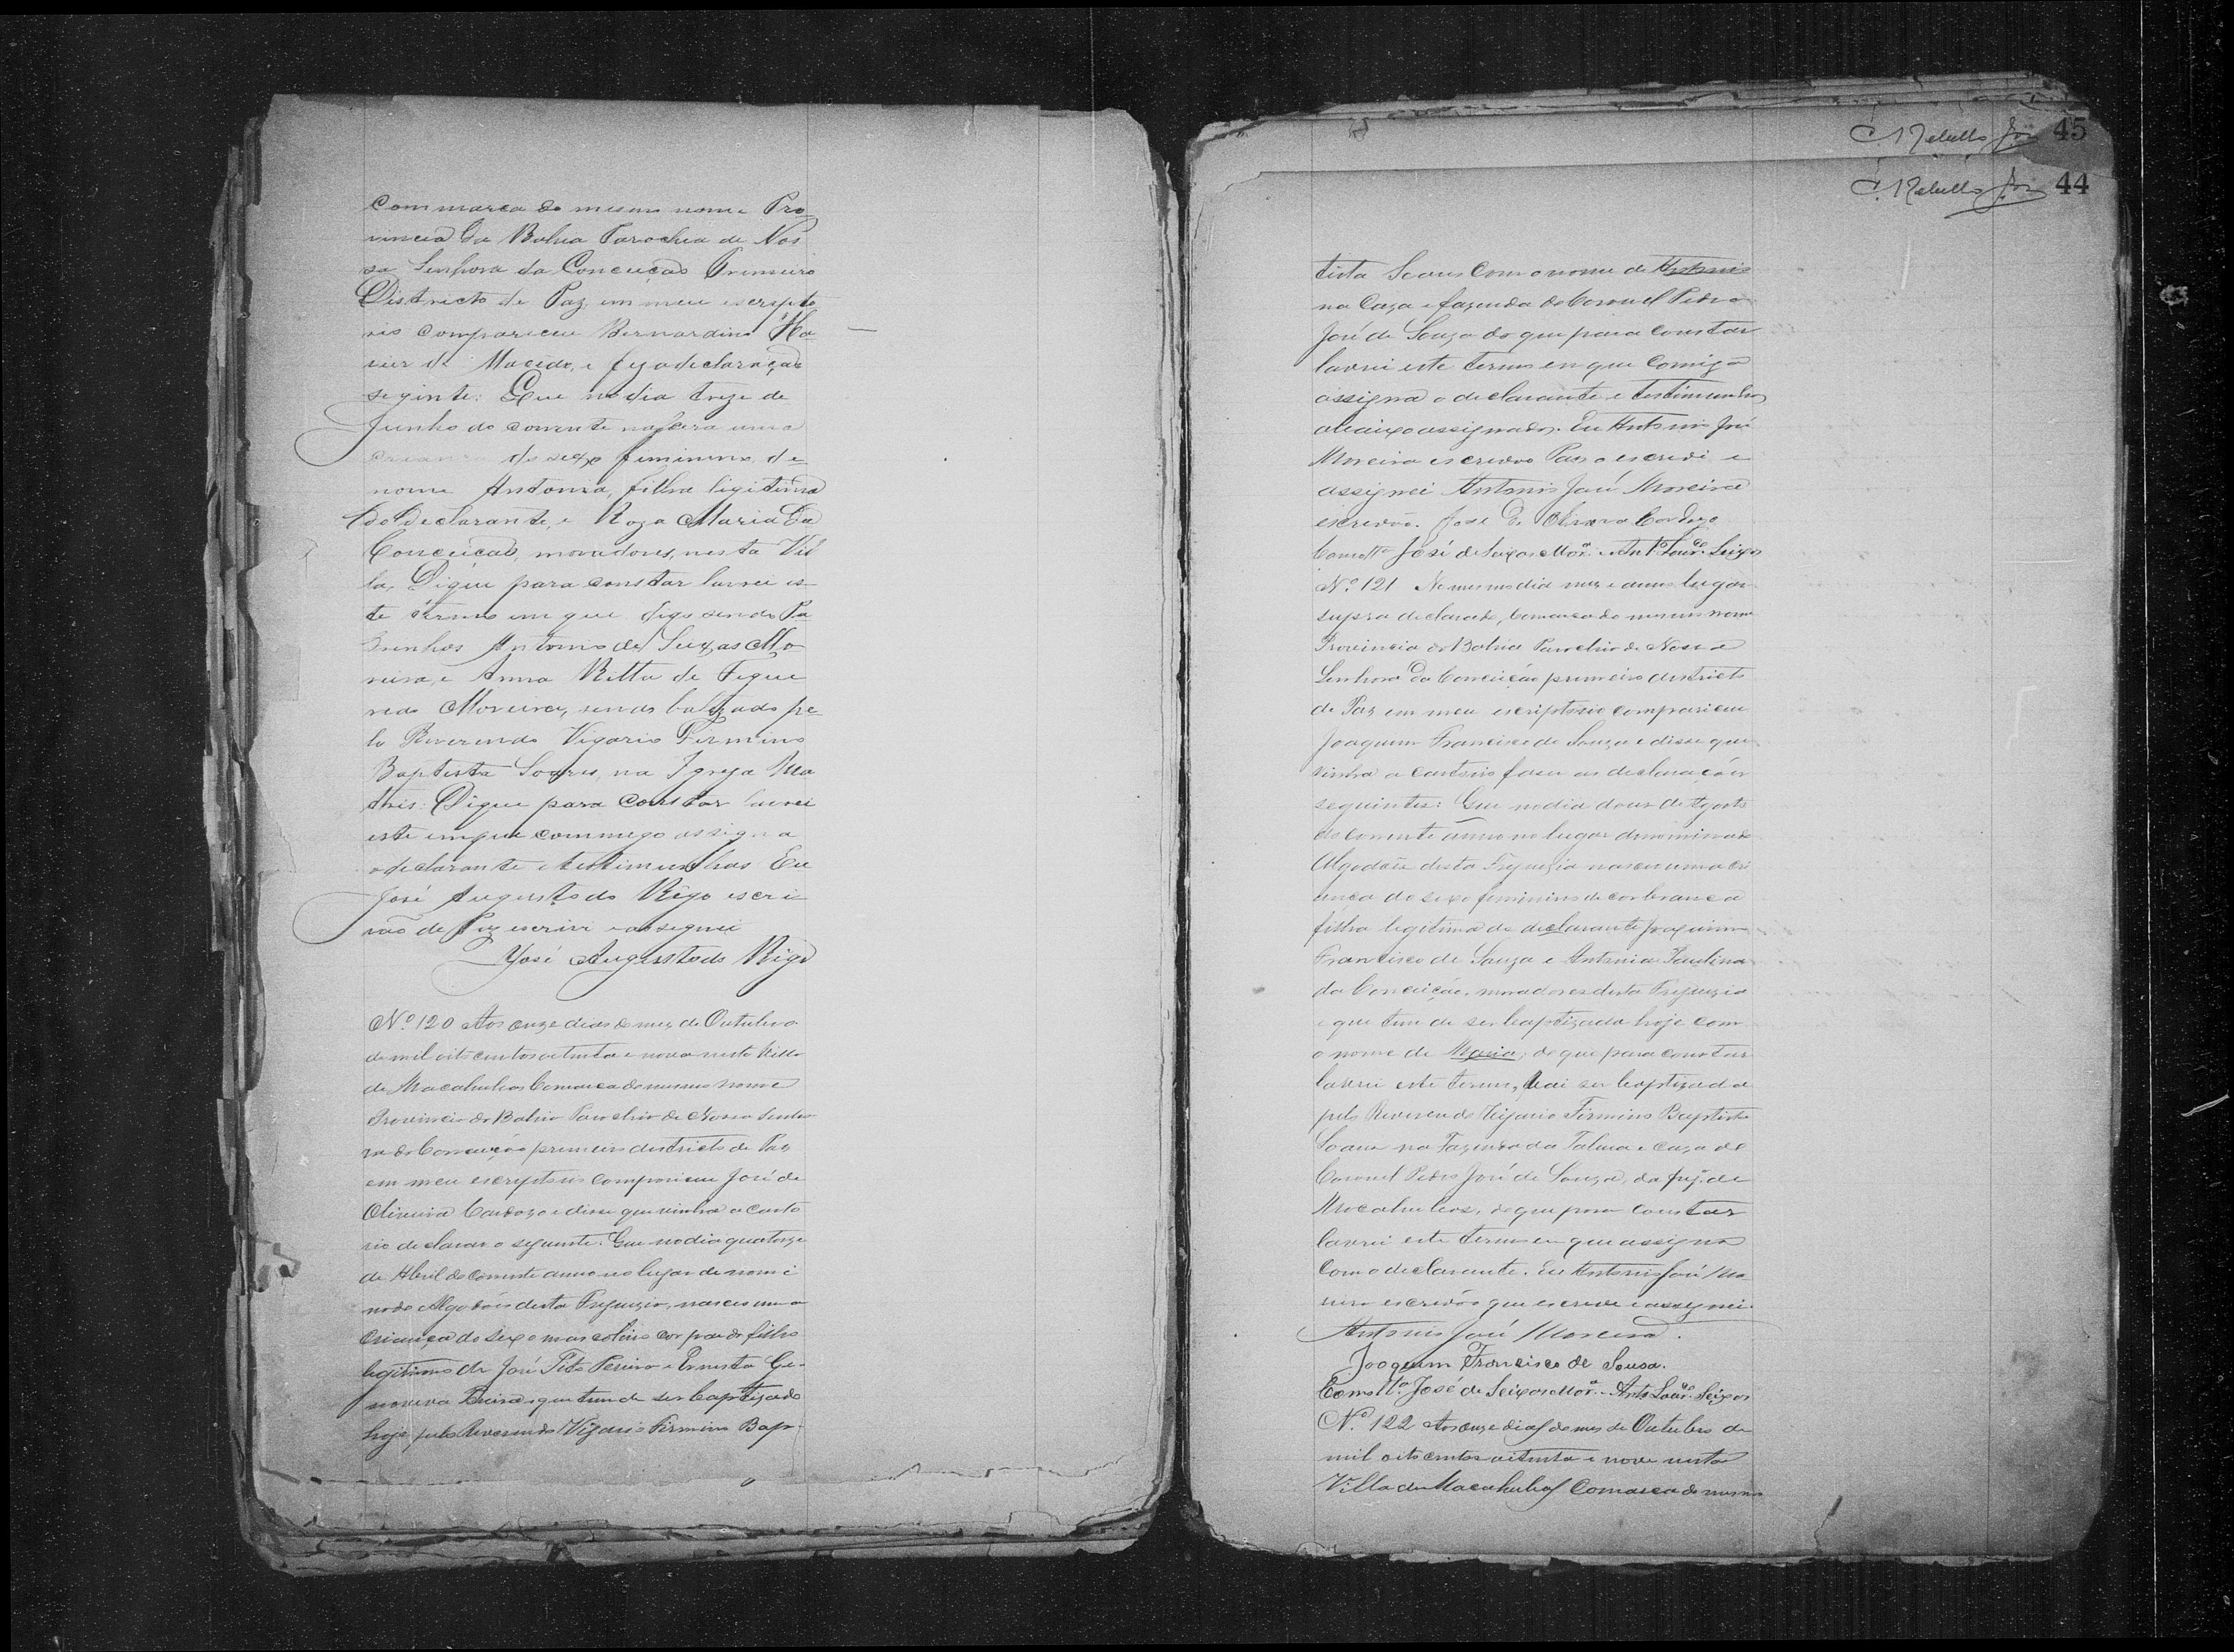 Commarca do mesmo nome Pro-
vincia da Bahia Parochia de Nos
sa Senhora da Conceição Primeiro
Districto de Paz em meu escripto
rio compareceu Bernardino Xa
vier de Macedo, e fez a declaração
seginte: Que no dia treze de
Junho do corrente nascera uma
creança do sexo feminino de
nome Antonia, filha ligitima
do declarante, e Roza Maria da
Conceicão, moradores, nesta Vil
la, Dique para constar lavrei es-
te termo em que digo sendo Pa
drinhos Antonio de Seixas Mo
reira, e Anna Ritta de Figue
redo Moreira, sendo batizado pe-
lo Reverendo Vigario Firmino
Baptista Soares, na Igreja Ma
tris: Dique para constar lavrei
este emque commigo assigna
o declarante e testimunhas Eu
José Augusto do Rêgo escri-
vão de Paz escrivi e assignei
José Augusto do Rêgo
Nº 120 Aos onze dias do mez de Outubro
de mil oito centos oitenta e nove nesta Villa
de Macahubas Comarca do mesmo nome
Provincia da Bahia Parochia de Nossa Senho
ra da Conceição primeiro districto de Paz
em meu escriptorio compareceu José de
Oliveira Cardozo e disse que vinha a carto
rio declarar o seguinte: Que no dia quatorze
de Abril do corrente anno no lugar denomi
nado Algodões desta Freguezia, nasceu uma
criança do sexo mascolino cor parda filho
legitimo de José Pereira e Ernesta Ge-
noveva que tem de ser baptizado
hoje pelo Reverendo Vigario Firmino Bap-
C. Rebello Jor 45
C. Rebello Jor 44
tista Soares com o nome de Antonio
na Caza e fazenda do Coronel Pedro
José de Souza do que para constar
lavrei este termo em que comigo
assigna o declarante e testimunhas
abaixo assignados. Eu Antonio José
Moreira escrivão Paz o escrevi e
assignei Antonio José Moreira
escrivão. José de Oliveira Cardozo
Como ta José de Seixas Mora. Anto Lourco Seixas
Nº 121 No mesmo dia mez e anno lugar
supra declarado, Comarca do mesmo nome
Provincia da Bahia Parochia de Nossa
Senhora da Conceição primeiro districto
de Paz em meu escriptorio compareceu
Joaquim Francisco de Souza e disse que
vinha a cartorio faser as declarações
seguintes: Que no dia dous de Agosto
do corrente anno no lugar denominado
Algodões desta Freguezia nasceu uma cri
ança do sexo feminino de cor branca
filha legitima do declarante Joaquim
Francisco de Souza e Antonia Paulina
da Conceição, moradores desta Freguezia
e que tem de ser baptizada hoje com
o nome de Maria, do que para constar
lavrei este termo, vai ser baptizada
pelo Reverendo Vigario Firmino Baptista
Soares na Fazenda da Palma e Caza do
Coronel Pedro José de Souza, da freg. de
Macahubas, do que para constar
lavrei este termo em que assigna
com o declarante. Eu Antonio José Mo
reira escrivão que escrevi e assignei.
Antonio José Moreira.
Joaquim Francisco de Sousa.
Como ta José de Seixas Mora. Anto Lourco Seixas
Nº 122 Aos onze dias do mes de Outubro de
mil oito centos oitenta e nove nesta
Villa de Macahubas Comarca do mesmo